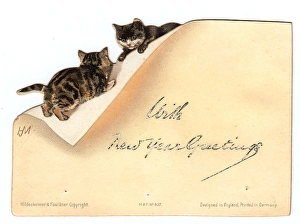 With
New Year Greetings
HM
Hildesheimer & Faulkner Copyright.
Designed in England, Printed in Germany.